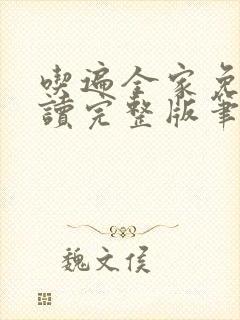 喫遍全家免
讀完整版筆
魏文侯